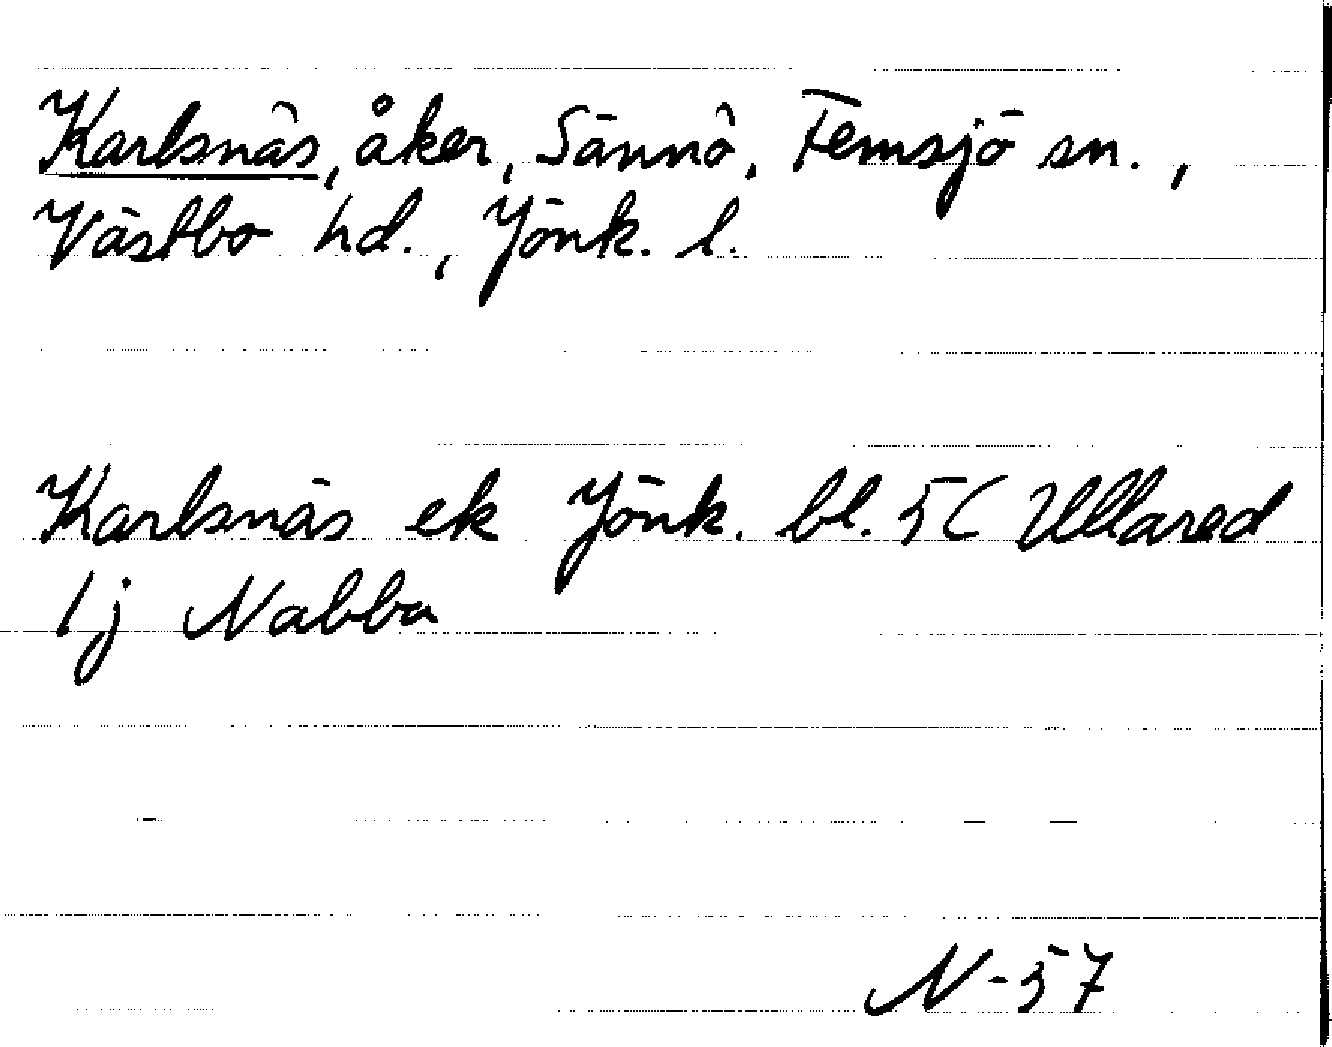 Karlsnäs, åker, Sännö, Femsjö sn.,
Västbo hd., Jönk. l.
Karlsnäs ek Jönk. bl. 5C Ullared
1j Nabba
N-57